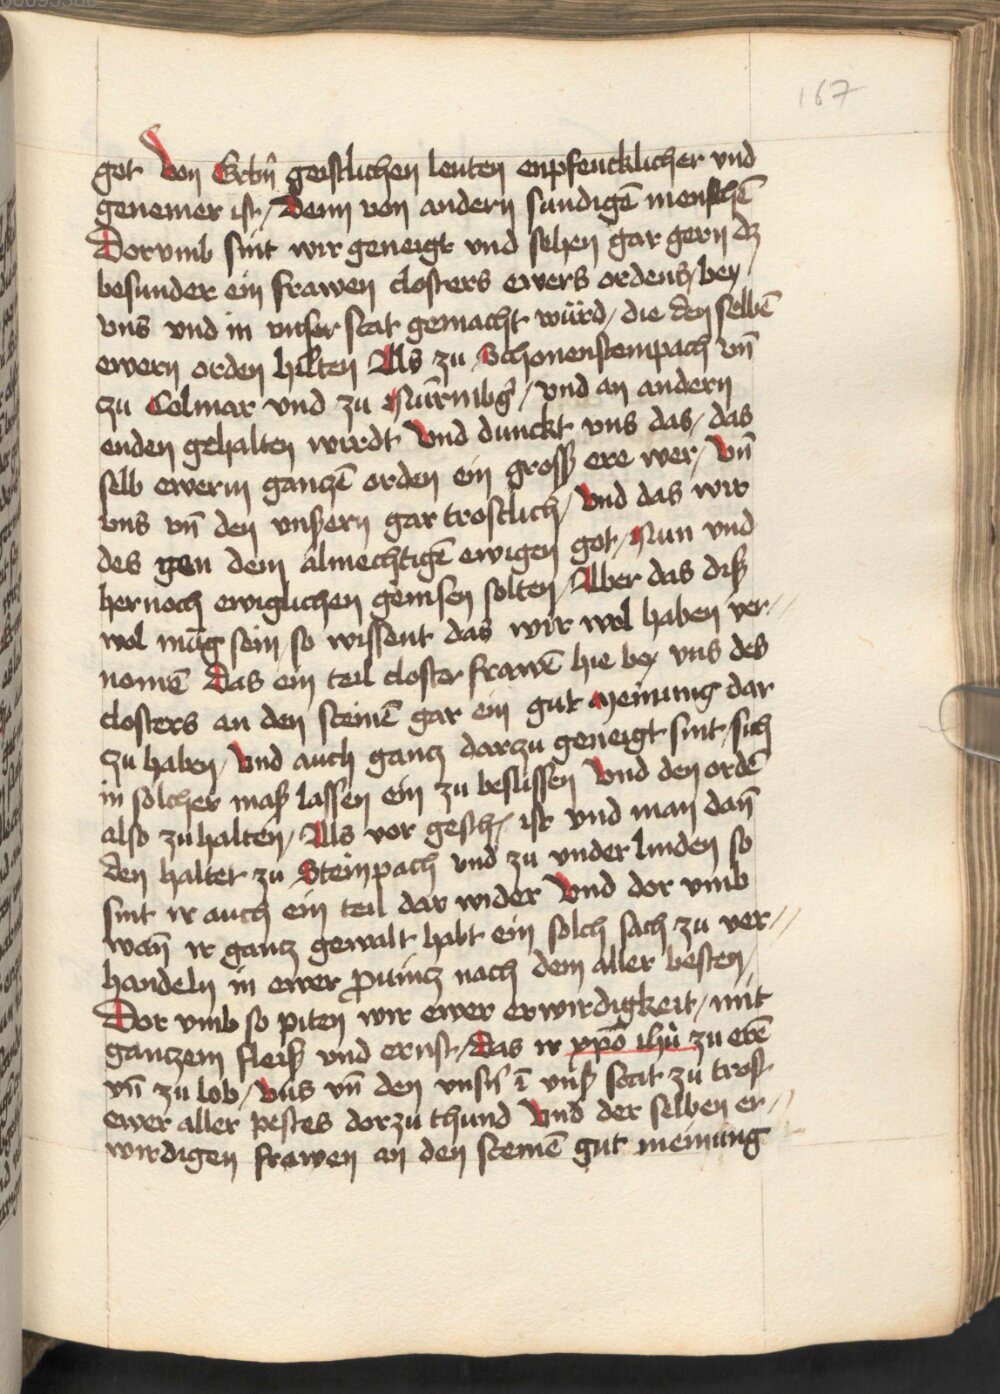 167
got Von Erbrn̄ geistlichen leuten enpfencklicher vnd
genemer ist / Denn von andern sundigē menschē
Dorvmb sint wir geneigt vnd sehen gar gern dz
besunder ein frawen closters ewers ordens / bey
vns vnd in vnser stat gemacht würd / die den selbē
ewern orden hilten Als zu Schonenstempach vn̄
zu Colmar vnd zu Nūrmb̄g / vnd an andern
enden gehalten wirdt Vnd dunckt vns das / das
selb ewerm gantzē orden ein gross ere wer / Vn̄
vns vn̄ den vnsern gar trostlich / Vnd das wir
des gen dem almechtigē ewigen got / Nun vnd
hernoch ewiglichen genisen solten / Aber das diß
wol müg sein / so wissent das wir wol haben ver//
nomē Das ein teil closter frawē hie bey vns des
closters an den steinē gar ein gut Meinung dar
zu haben / Vnd auch gantz darzu geneigt sint / sich
in sölcher maß lassen ein zu beslissen Vnd den ordē
also zu halten / Als vor gesch / ist vnd man dan̄
den haltet zu Steinpach vnd zu vnder linden so
sint ir auch ein teil dar wider Vnd dor vmb
wan̄ ir gantz gewalt habt ein sölch sach zu ver//
handeln in ewer prouintz nach dem aller besten /
Dor vmb so piten wir ewer erwirdigkeit / mit
gantzem fleiß vnd ernst / Das ir xp̄o ihū zu erē
vn̄ zu lob / Vns vn̄ den vnsn̄ ī vnß stat zu trost
ewer aller pestes dorzu thund Vnd der selben er//
wirdigen frawen an den steinē gut meinung